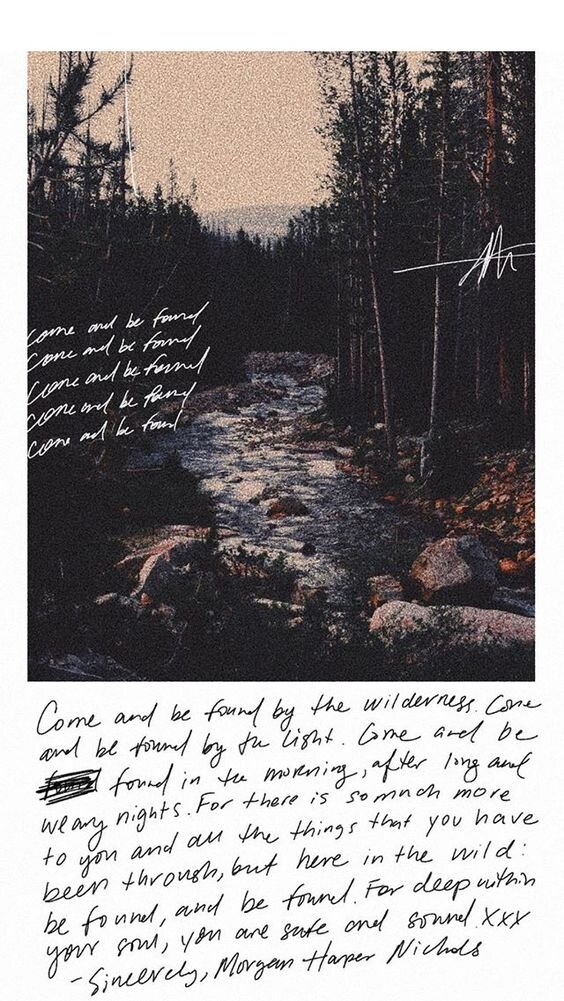 come and be found
come and be found
come and be found
come and be found
come and be found
Come and be found by the wilderness. Come
and be found by the light. Come and be
found in the morning, after long and
weary nights. For there is so much more
to you and all the things that you have
been through, but here in the wild:
be found, and be found. For deep within
your soul, you are safe and sound. xxx
- Sincerely, Morgan Harper Nichols